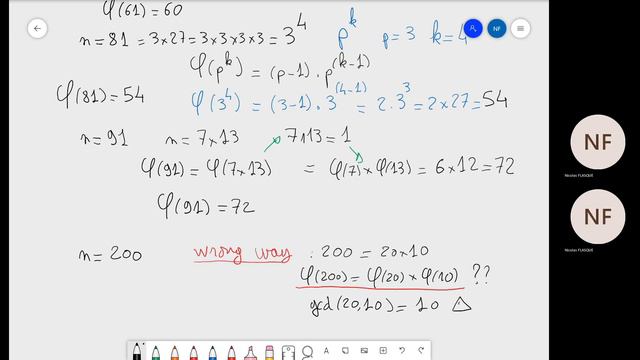 φ(61)=60
n=81 =3×27=3×3×3×3=3^4 p^k p=3 k=4
φ(p^k)=(p-1)·p^(k-1)
φ(81)=54 φ(3^4)=(3-1)·3^(4-1)=2·3^3=2×27=54
n=91 n=7×13 7∧13=1
φ(91)=φ(7×13) =φ(7)×φ(13)=6×12=72
φ(91)=72
n=200 wrong way : 200=20×10
φ(200)=φ(20)×φ(10) ??
gcd(20,10)=10 ⚠
NF
NF
Nicolas FLASQUE
NF
Nicolas FLASQUE